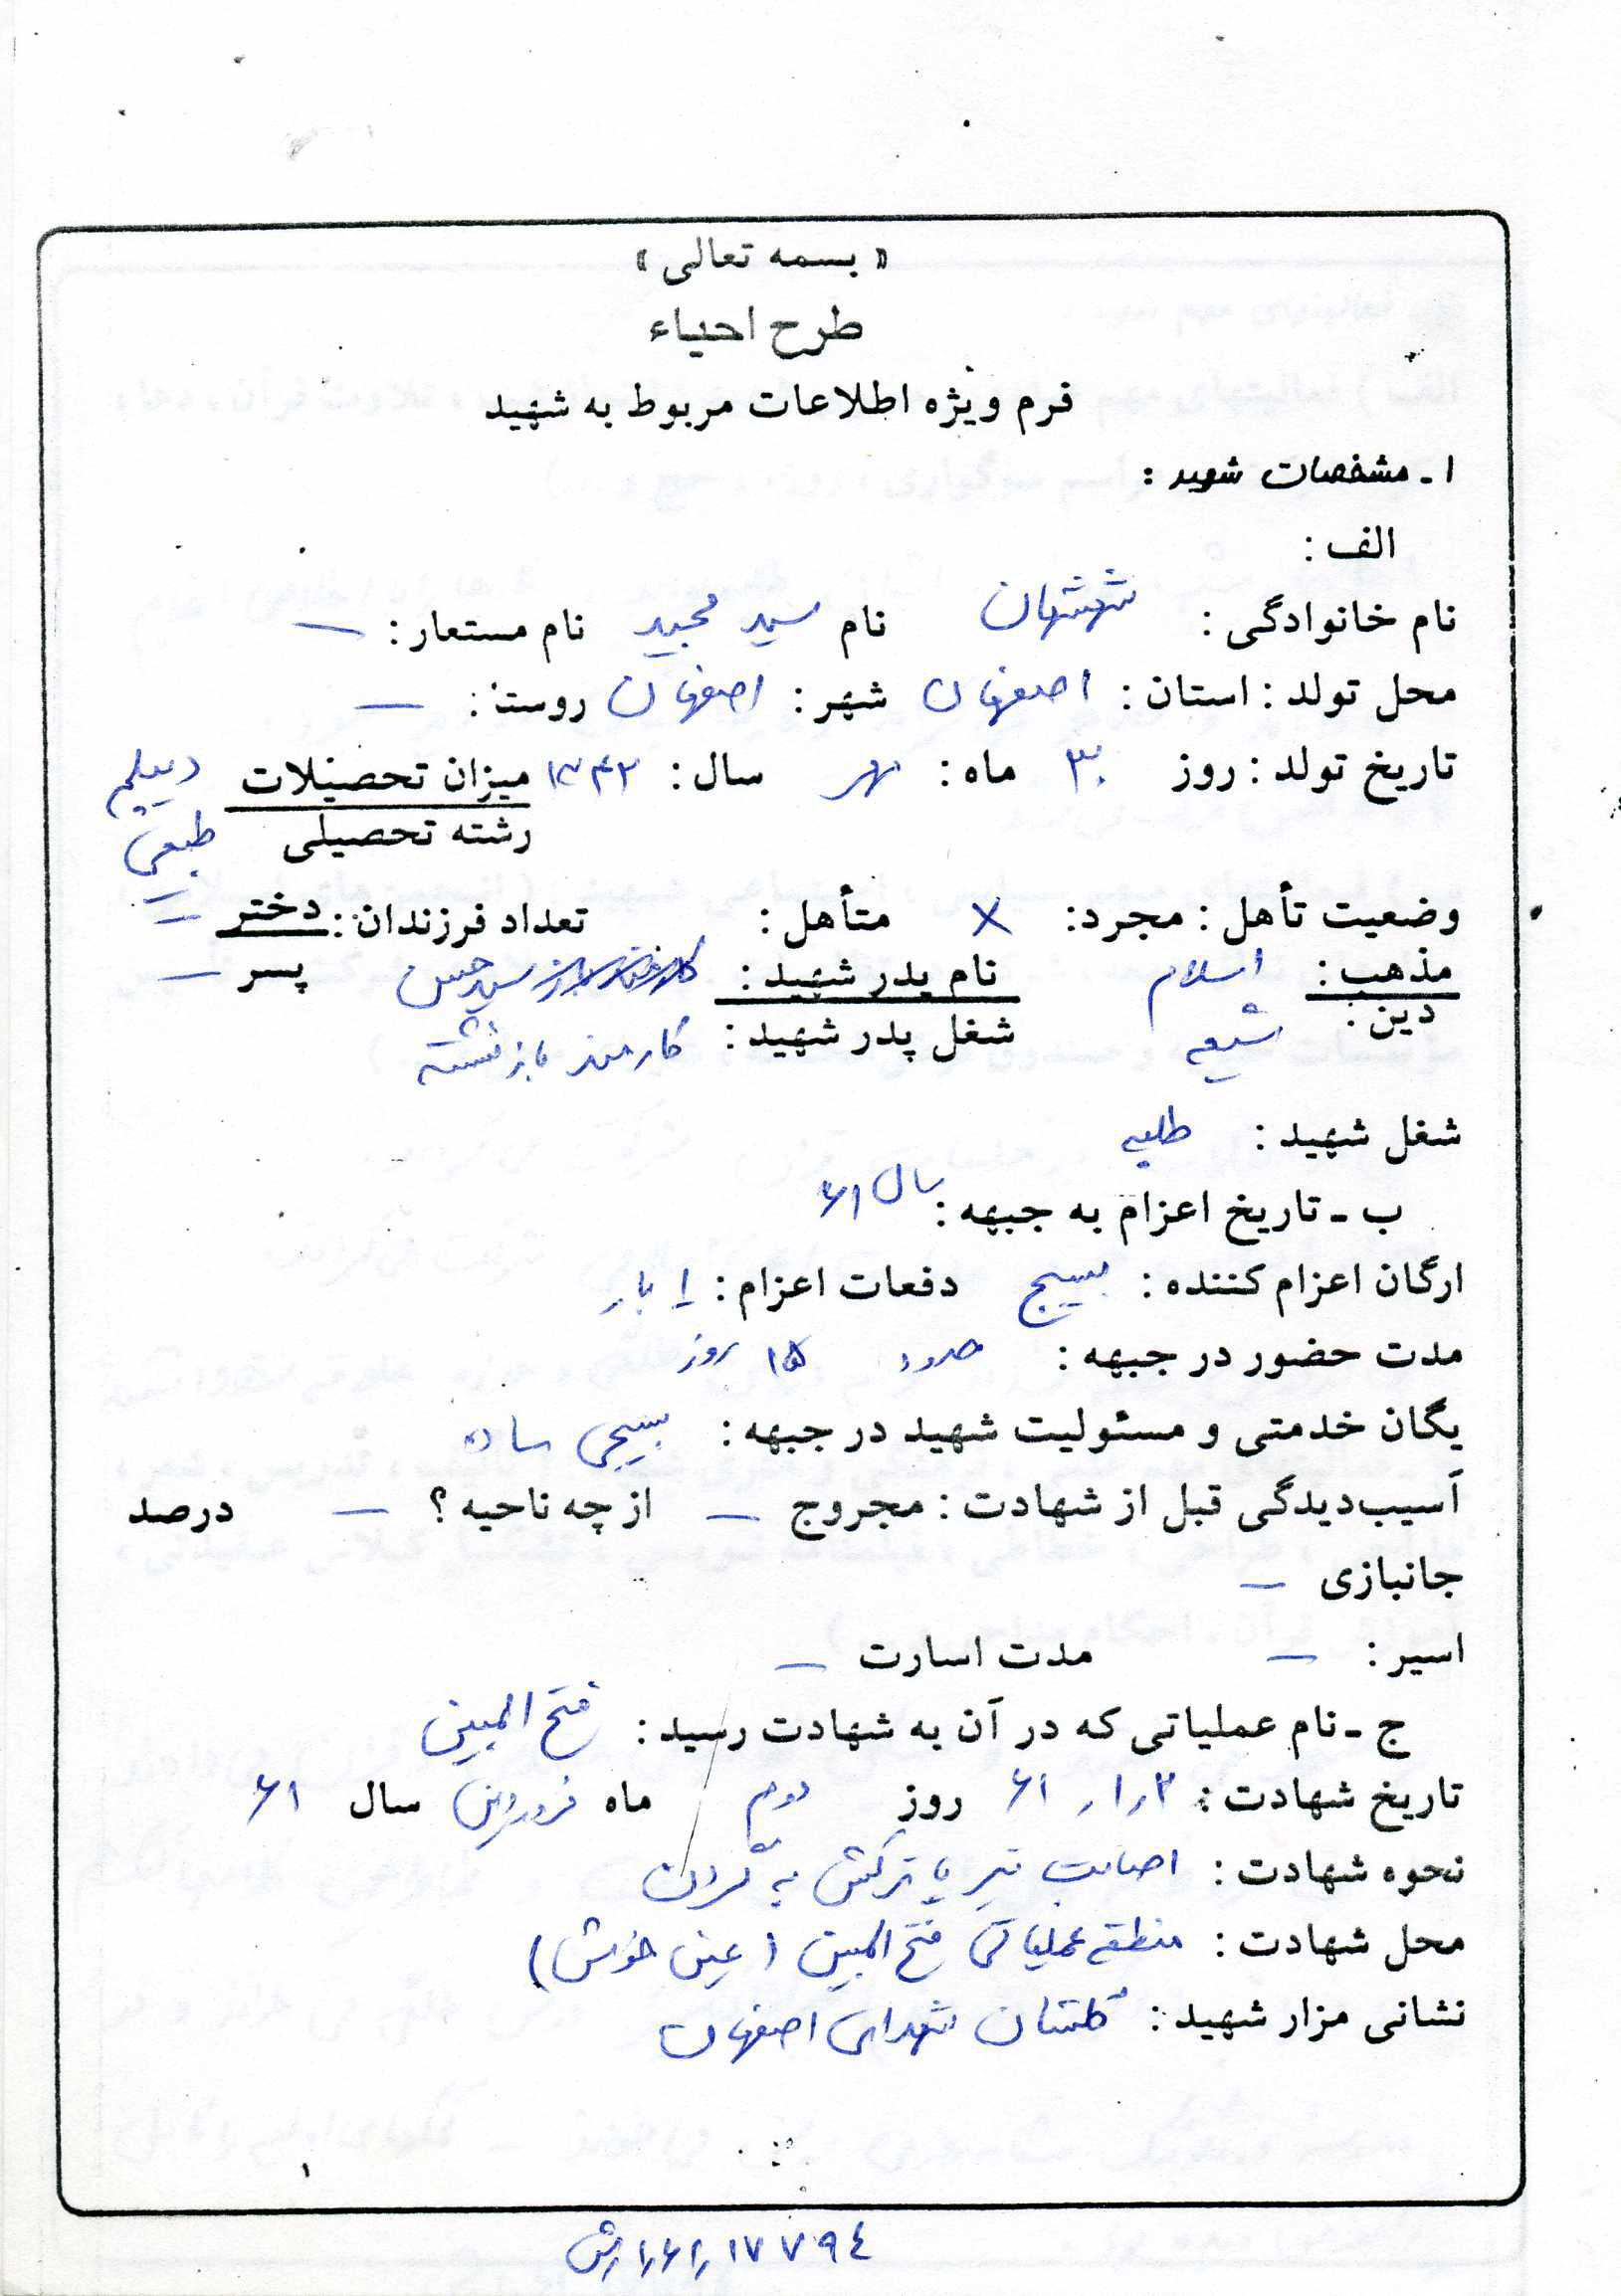 « بسمه تعالی »
طرح احیاء
فرم ویژه اطلاعات مربوط به شهید
۱ـ مشخصات شهید :
الف :
نام خانوادگی : شهشهان نام سید مجید نام مستعار : —
محل تولد : استان : اصفهان شهر : اصفهان روستا : —
تاریخ تولد : روز ۳۰ ماه : مهر سال : ۱۳۴۲ میزان تحصیلات دیپلم
رشته تحصیلی طبیعی
وضعیت تأهل : مجرد : X متأهل : تعداد فرزندان : دختر —
مذهب : اسلام نام پدر شهید : سید حسن پسر —
دین : شیعه شغل پدر شهید : کارمند بازنشسته
شغل شهید : طلبه
ب ـ تاریخ اعزام به جبهه : سال ۶۱
ارگان اعزام کننده : بسیج دفعات اعزام : ۱ بار
مدت حضور در جبهه : حدود ۱۵ روز
یگان خدمتی و مسئولیت شهید در جبهه : بسیجی ساده
آسیب‌دیدگی قبل از شهادت : مجروح — از چه ناحیه ؟ — درصد
جانبازی —
اسیر : — مدت اسارت —
ج ـ نام عملیاتی که در آن به شهادت رسید : فتح المبین
تاریخ شهادت : ۲ر۱ر۶۱ روز دوم ماه فروردین سال ۶۱
نحوه شهادت : اصابت تیر یا ترکش به گردن
محل شهادت : منطقه عملیاتی فتح المبین (عین خوش)
نشانی مزار شهید : گلستان شهدای اصفهان
۱
۱۷۷۹۴